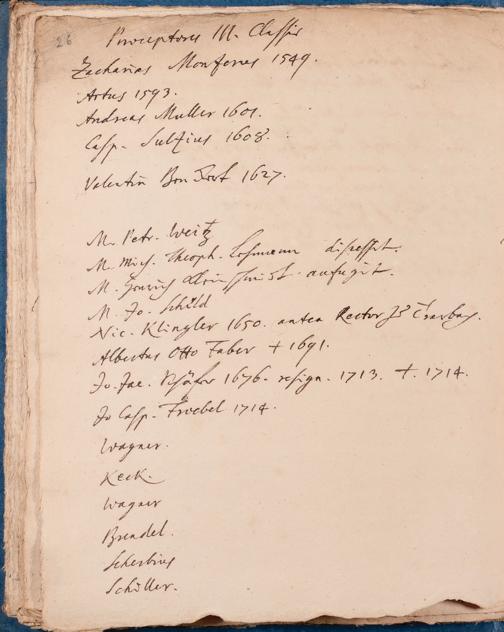 26
Præceptores III. Classis
Zacharias Monferus 1549.
Artus 1593.
Andreas Muller 1601.
Casp. Sulzius 1608.
Valentin 1627.
M. Petr. Weitz
M. Mich. Theoph. Lehmann discessit.
M. aufugit.
M. Jo. Schild
Nic. Klingler 1650. antea Rector
Albertus Otto Faber † 1691.
Jo. Jac. Schäfer 1676. resign. 1713. †. 1714.
Jo Casp. Froebel 1714.
Wagner.
Keck.
Wagner
Brendel.
Scherbius
Schiller.